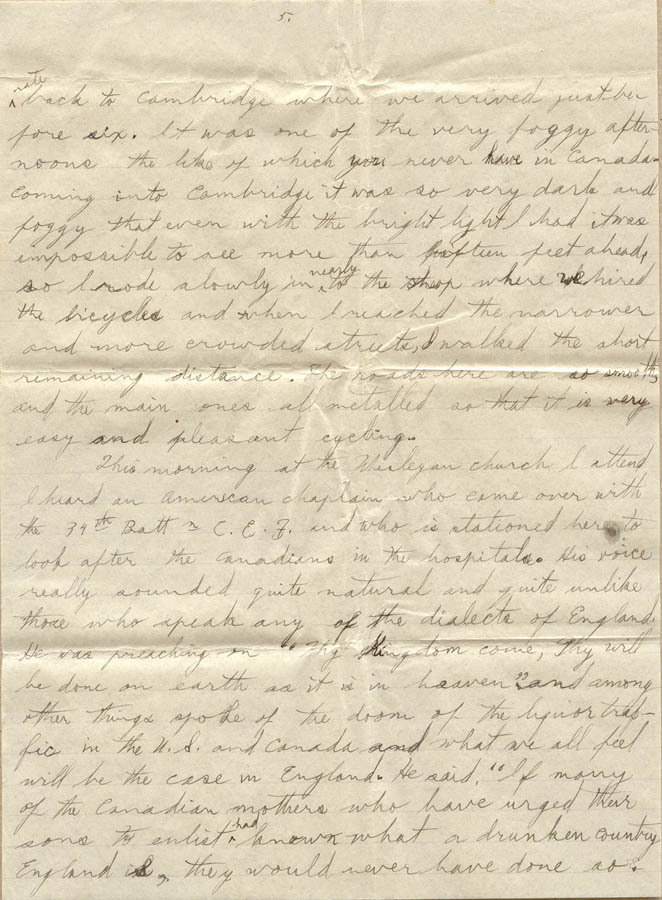 5.
rate
back to Cambridge where we arrived just be
fore six. It was one of the very foggy after-
noons the like of which you never have in Canada.
Coming into Cambridge it was so very dark and
foggy that even with the bright light I had it was
impossible to see more than fifteen feet ahead,
so I rode slowly in nearly to the shop where we hired
the bicycles and when I reached the narrower
and more crowded streets, I walked the short
remaining distance. The roads here are so smooth,
and the main ones all metalled so that it is very
easy and pleasant cycling.
This morning at the Wesleyan church I attend
I heard an American chaplain who came over with
the 39th Batt n C. E. F. and who is stationed here to
look after the Canadians in the hospitals. His voice
really sounded quite natural and quite unlike
those who speak any of the dialects of England.
He was preaching on "Thy Kingdom come, Thy will
be done on earth as it is in heaven" and among
other things spoke of the doom of the liquor traf-
fic in the U. S. and Canada and what we all feel
will be the case in England. He said, "If many
of the Canadian mothers who have urged their
sons to enlist had known what a drunken country
England is, they would never have done so.